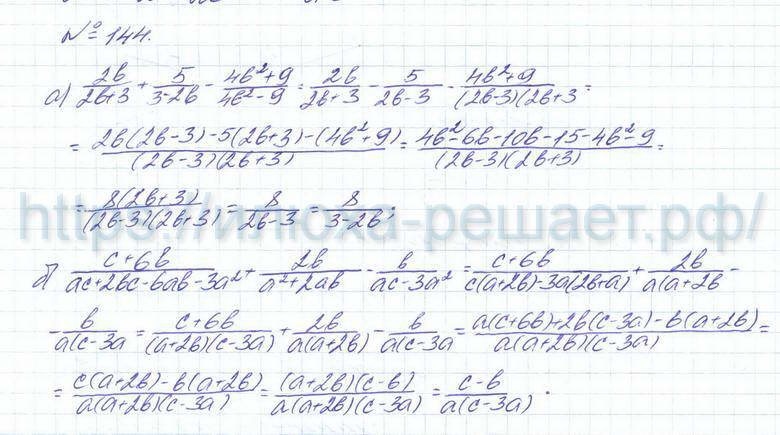 № 144.
а) 2b/(2b+3) + 5/(3-2b) - (4b²+9)/(4b²-9) = 2b/(2b+3) - 5/(2b-3) - (4b²+9)/((2b-3)(2b+3 =
= (2b(2b-3)-5(2b+3)-(4b²+9))/((2b-3)(2b+3)) = (4b²-6b-10b-15-4b²-9)/((2b-3)(2b+3)) =
= 8(2b+3)/((2b-3)(2b+3)) = 8/(2b-3) = 8/(3-2b);
http://илюха-решает.рф/
б) (c+6b)/(ac+2bc-6ab-3a²) + 2b/(a²+2ab) - b/(ac-3a²) = (c+6b)/(c(a+2b)-3a(2b+a)) + 2b/(a(a+2b -
- b/(a(c-3a = (c+6b)/((a+2b)(c-3a)) + 2b/(a(a+2b)) - b/(a(c-3a = (a(c+6b)+2b(c-3a)-b(a+2b))/(a(a+2b)(c-3a)) =
= (c(a+2b)-b(a+2b))/(a(a+2b)(c-3a)) = (a+2b)(c-b)/(a(a+2b)(c-3a)) = (c-b)/(a(c-3a)).